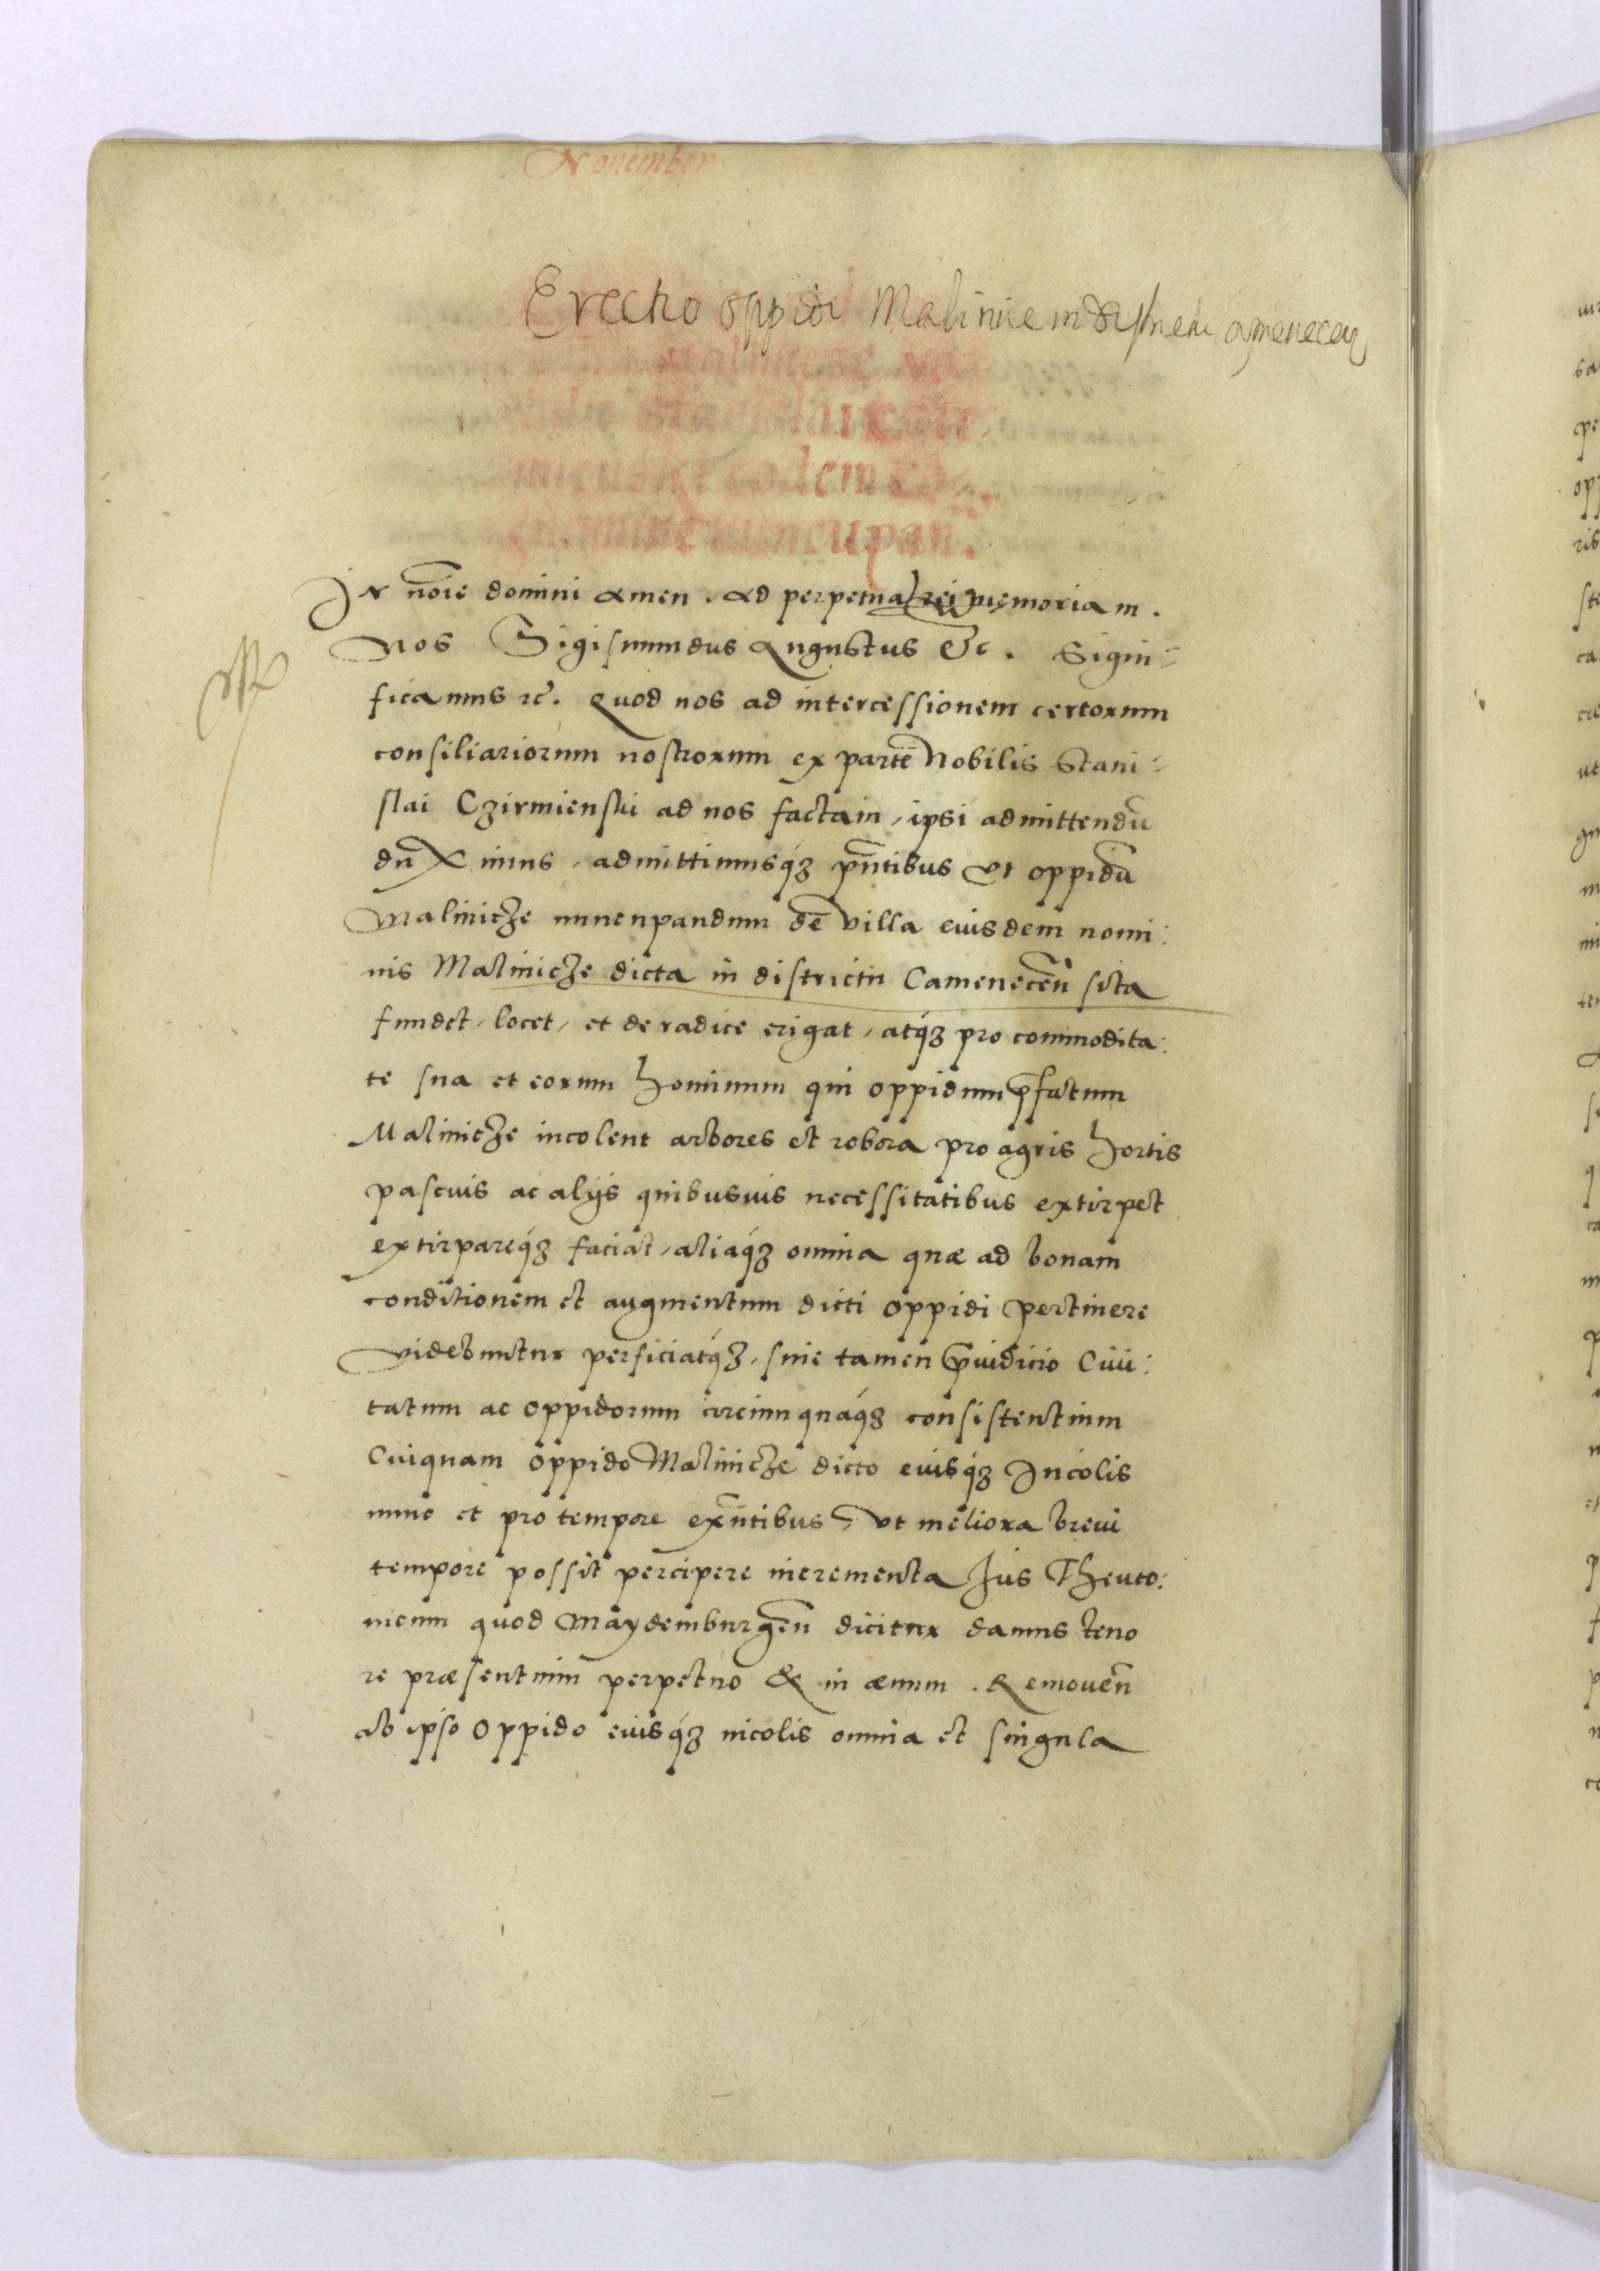 Nouember
Erectio oppidi Malinicze in districtu Camenecen
In nōie domini Amen. Ad perpetuā rei memoriam.
Nos Sigismundus Augustus &c. Signi:
ficamus ꝛc̄. Quod nos ad intercessionem certorum
consiliariorum nostrorum ex parte Nobilis Stani:
slai Czirmienski ad nos factam, ipsi admittendū
duximus, admittimusqȝ pn̄tibus Vt oppidū
Malinicze nuncupandum de villa eiusdem nomi:
nis Malinicze dicta in districtu Camenecen̄ sita
fundet, locet, et de radice erigat, atqȝ pro commodita:
te sua et eorum hominum qui oppidum p̄fatum
Malinicze incolent arbores et robora pro agris hortis
pascuis ac alijs quibusuis necessitatibus extirpet
extirpareqȝ faciat, aliaqȝ omnia quæ ad bonam
conditionem et augmentum dicti oppidi pertinere
videbuntur perficiatqȝ, sine tamen p̄iudicio Ciui:
tatum ac oppidorum circumquaqȝ consistentium
Cuiquam oppido Malinicze dicto eiusqȝ Incolis
nunc et pro tempore exn̄tibus, vt meliora breui
tempore possit percipere incrementa Jus Theuto:
nicum quod Maydemburgen̄ dicitur damus teno
re præsentium perpetuo & in æuum. Remouen̄
ab ipso Oppido eiusqȝ incolis omnia et singula